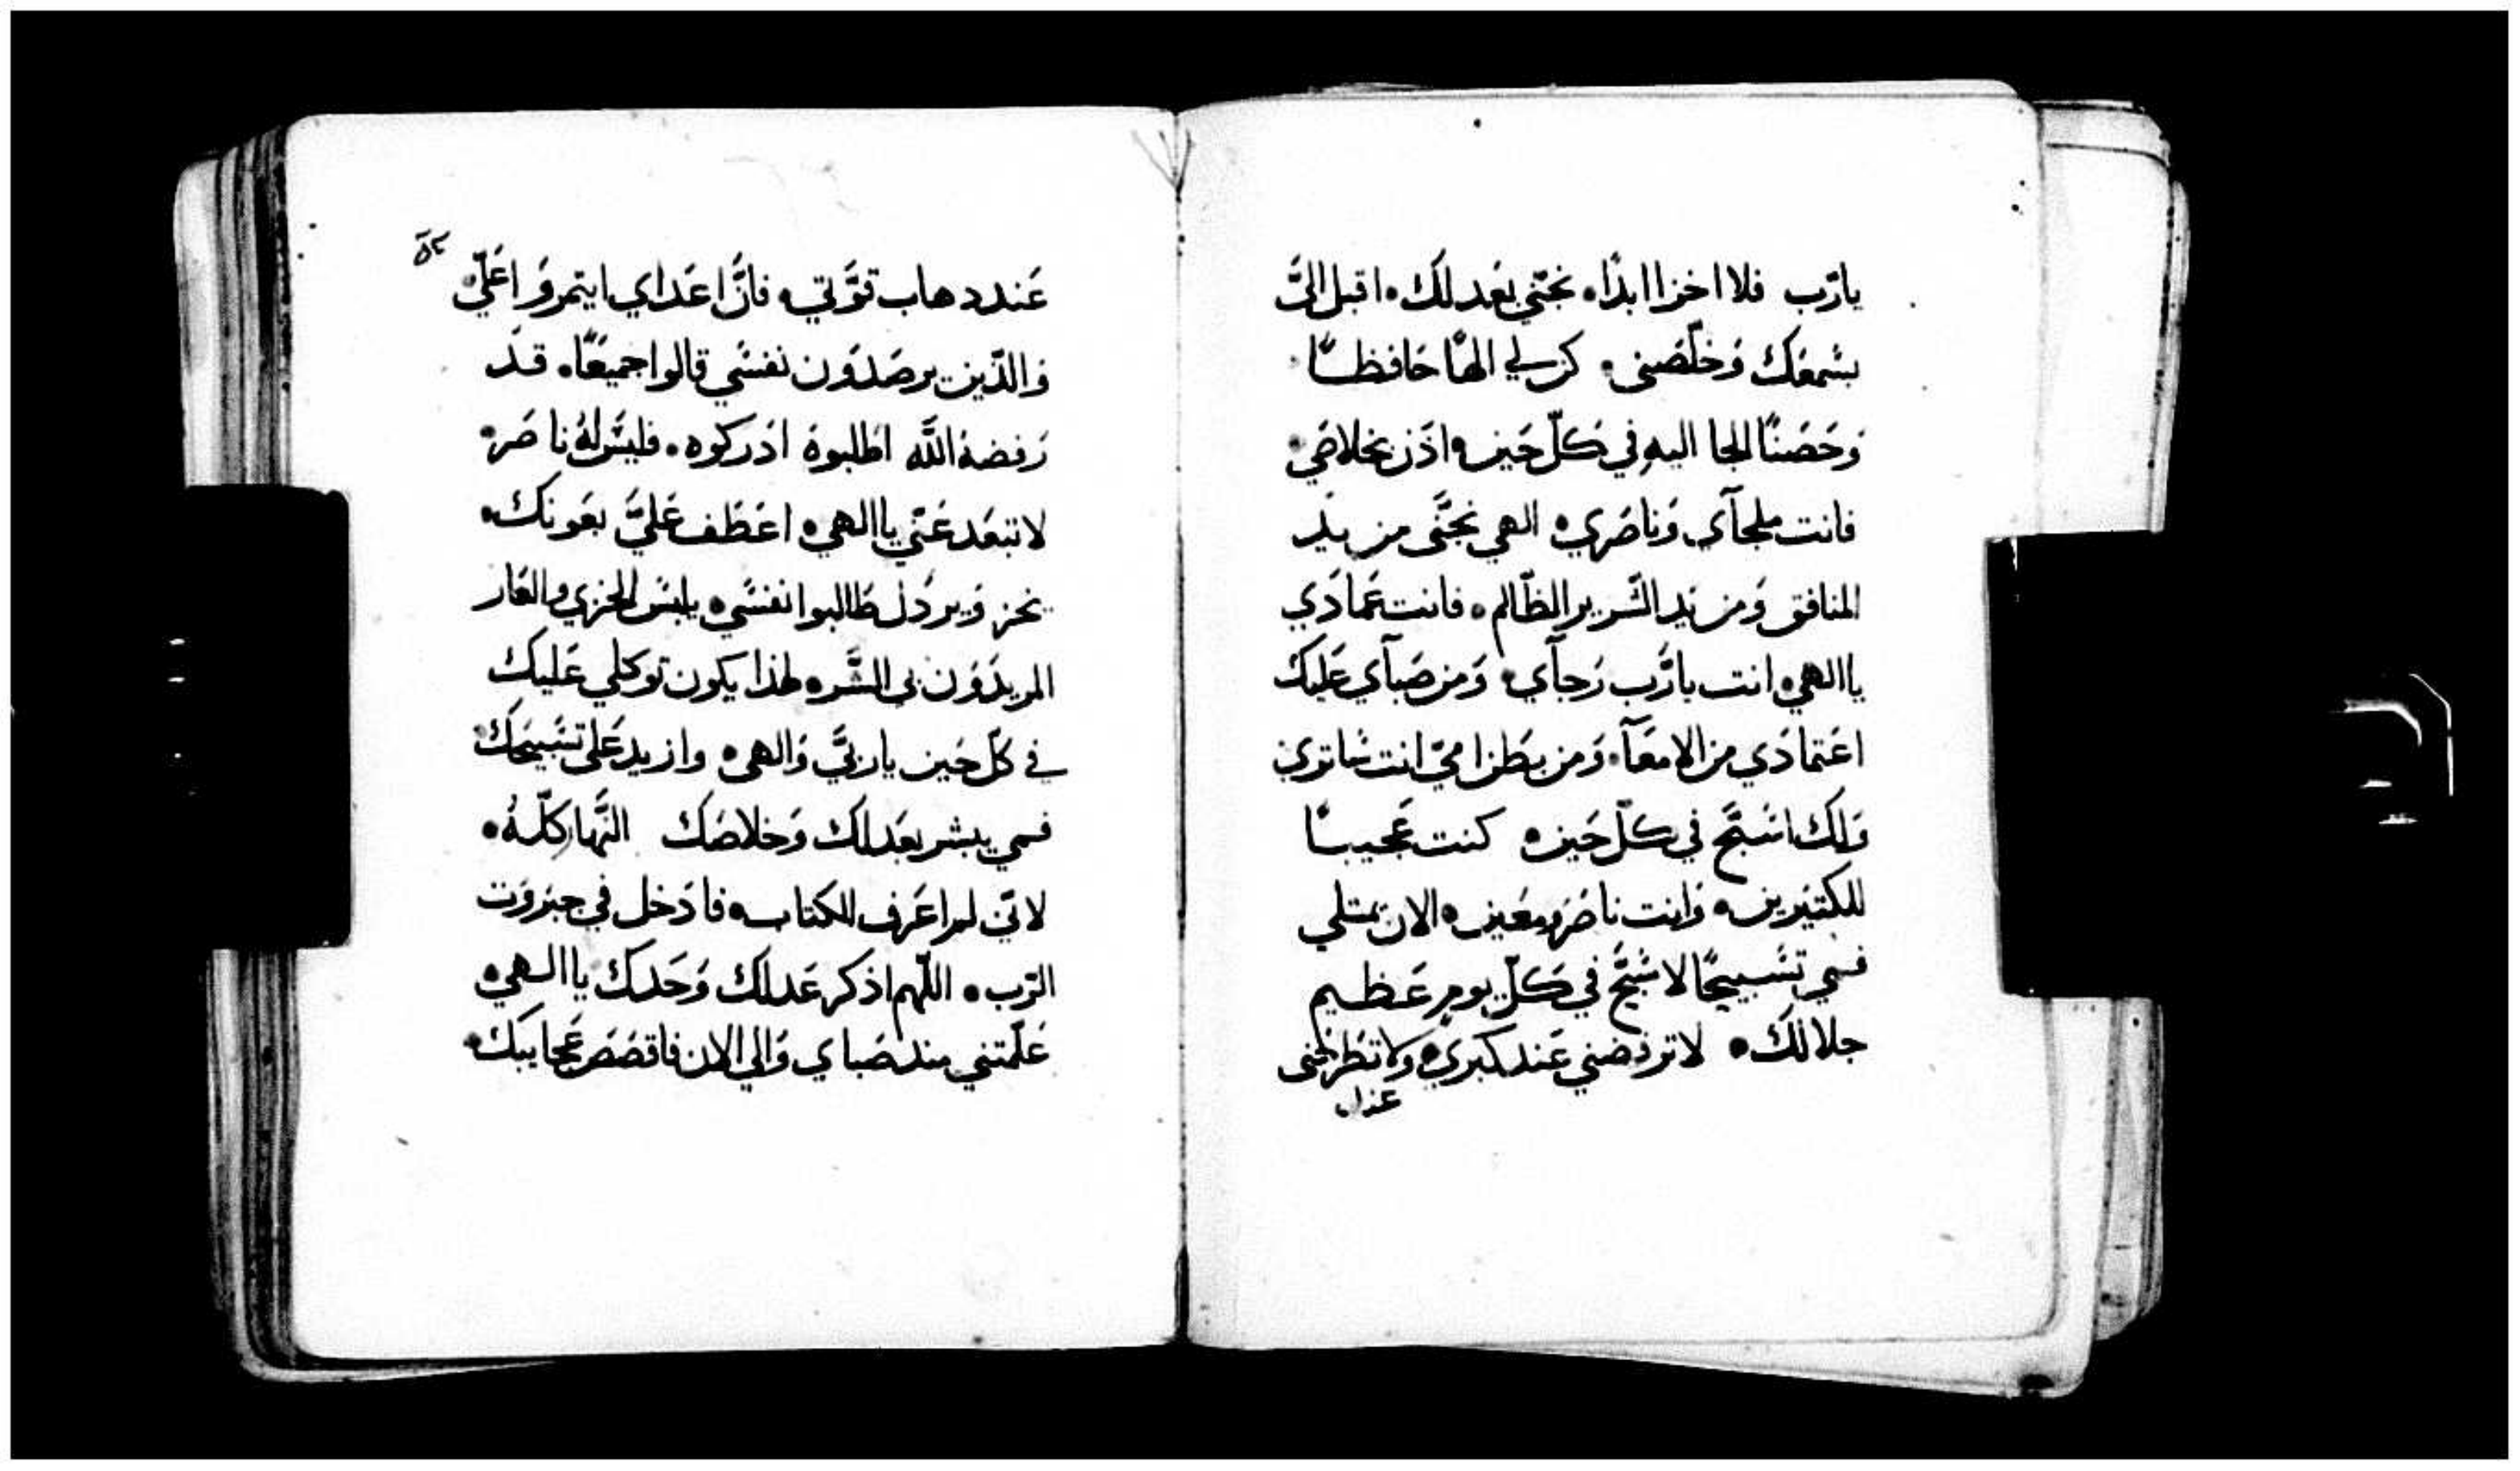 يارّب فلا اخزا ابدًا. نجّني بعَدلك. اقبل اليَّ
بسَمعَك وَخلّصَني. كن لي الهًا حَافظـًا
وَحَصَنًا الجا اليهِ في كلّ حَين. اذَن بخلاصَي.
فانت ملجآي. وَناصَري. الهي نجّنَي من يَدِ
المنافق وَمن يَد الشَرير الظّالم. فانت عَمادَي
ياالهي. انت يارَّب رَجآي. وَمن صَبآي عَليك
اعَتمادَي من الامعَآ. وَمن بطَن امّي انت سَاتري
وَلك اسَبّحَ في كلّ حَين. كنت عَجيبـًا
للكثيَرين. وَانت ناصَر ومعَين. الان يمتلي
فمي تسَبيحًا لاسَبّحَ في كلّ يومٍ عَظـيم
جلالك. لا ترفضني عَند كبري. ولا تطَرحَني
عند
٥٨
عَند دهاب قوَّتي. فانَّ اعَداي ايتمروَا عَليّ.
وَالذّين يرصَدوَن نفسَي قالوا جميعًا. قـدَ
رَفضهُ اللَّه اطَلبوهُ ادَركوه. فليسَ لهُ ناصَر.
لا تبعَد عَنّي ياالهي. اعَطَف عَليَّ بعَونك.
يخز وَيردَل طَالبوا نفسَي. يلبسَ الخزي والعَار
المريدَوَن بي الشَّر. لهذا يكون توكلي عَليك
في كلّ حَين ياربيَّ وَالهي. وازيد عَلى تسَبيحَك.
فمي يبشر بعَدلك وَخلاصَك النَّهار كلّهُ.
لانّي لم اعَرف الكتابه. فادَخل في جبَروَت
الرّب. اللّهم اذكر عَدلك وَحَدك ياالـهي.
عَلّمتني مند صَباي وَالي الان فاقصَصَ عَجايبك.